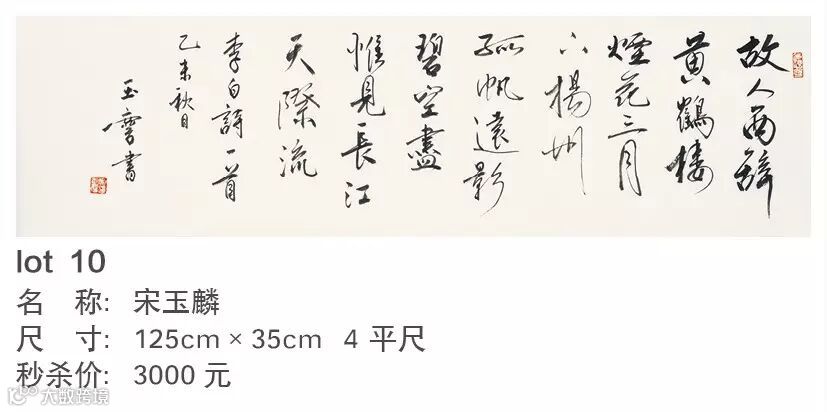 故人西辞
黄鶴楼
煙花三月
下揚州
孤帆遠影
碧空盡
惟見長江
天際流
李白詩一首
乙未秋日
玉麐書
lot 10
名 称: 宋玉麟
尺 寸: 125cm × 35cm 4 平尺
秒杀价: 3000 元
大数跨境